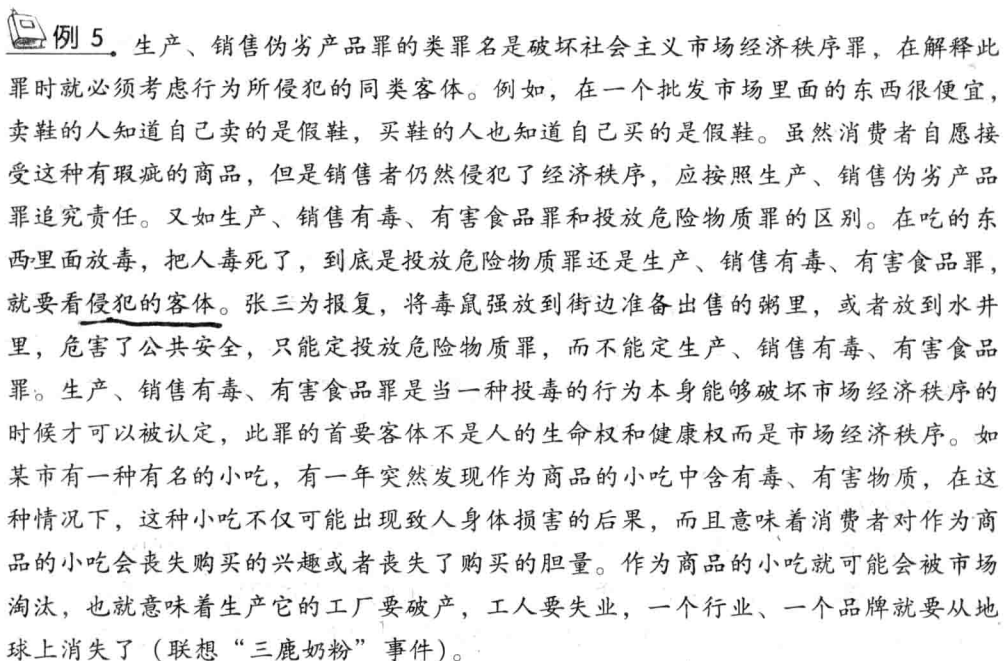 例 5. 生产、销售伪劣产品罪的类罪名是破坏社会主义市场经济秩序罪，在解释此
罪时就必须考虑行为所侵犯的同类客体。例如，在一个批发市场里面的东西很便宜，
卖鞋的人知道自己卖的是假鞋，买鞋的人也知道自己买的是假鞋。虽然消费者自愿接
受这种有瑕疵的商品，但是销售者仍然侵犯了经济秩序，应按照生产、销售伪劣产品
罪追究责任。又如生产、销售有毒、有害食品罪和投放危险物质罪的区别。在吃的东
西里面放毒，把人毒死了，到底是投放危险物质罪还是生产、销售有毒、有害食品罪，
就要看侵犯的客体。张三为报复，将毒鼠强放到街边准备出售的粥里，或者放到水井
里，危害了公共安全，只能定投放危险物质罪，而不能定生产、销售有毒、有害食品
罪。生产、销售有毒、有害食品罪是当一种投毒的行为本身能够破坏市场经济秩序的
时候才可以被认定，此罪的首要客体不是人的生命权和健康权而是市场经济秩序。如
某市有一种有名的小吃，有一年突然发现作为商品的小吃中含有毒、有害物质，在这
种情况下，这种小吃不仅可能出现致人身体损害的后果，而且意味着消费者对作为商
品的小吃会丧失购买的兴趣或者丧失了购买的胆量。作为商品的小吃就可能会被市场
淘汰，也就意味着生产它的工厂要破产，工人要失业，一个行业、一个品牌就要从地
球上消失了（联想“三鹿奶粉”事件）。